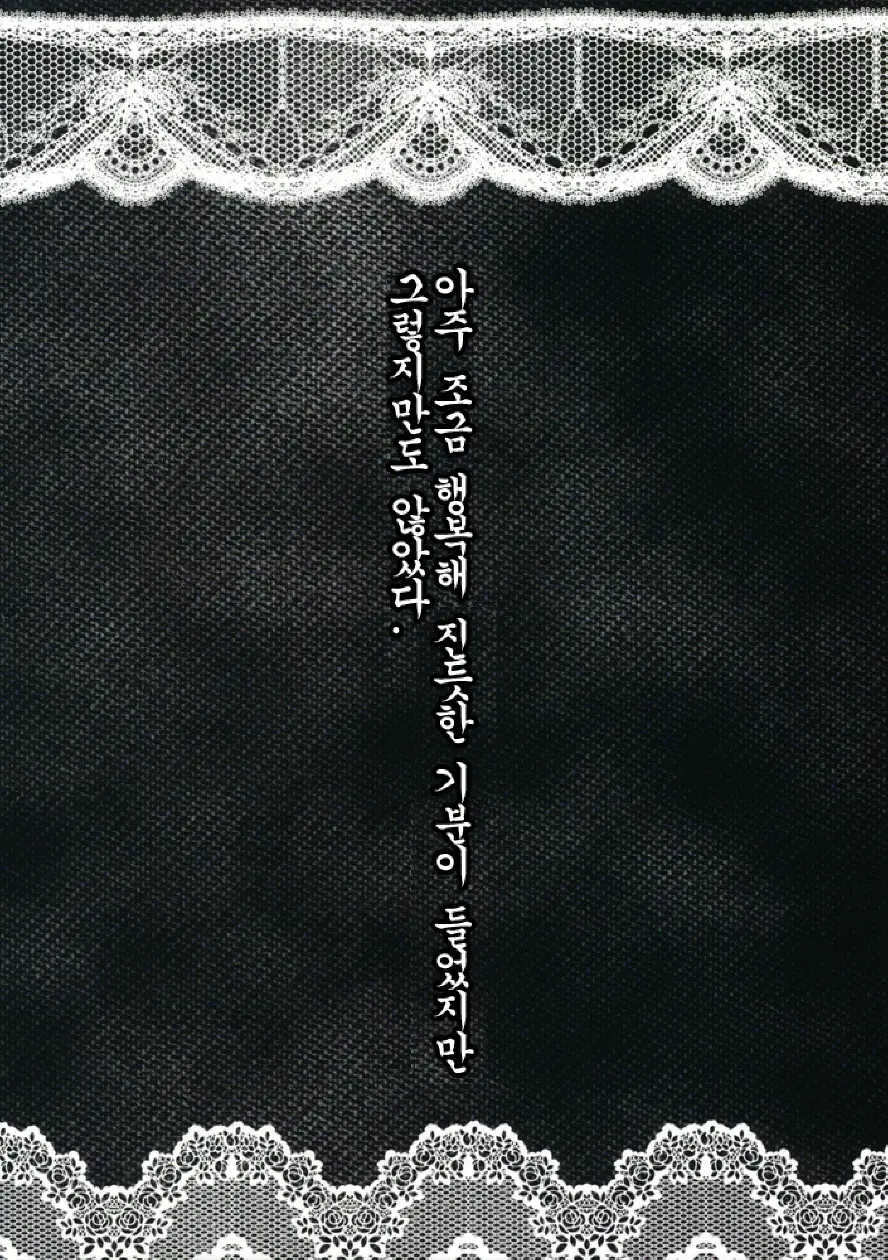 아주 조금 행복해 진듯한 기분이 들었지만
그렇지만도 않았다.